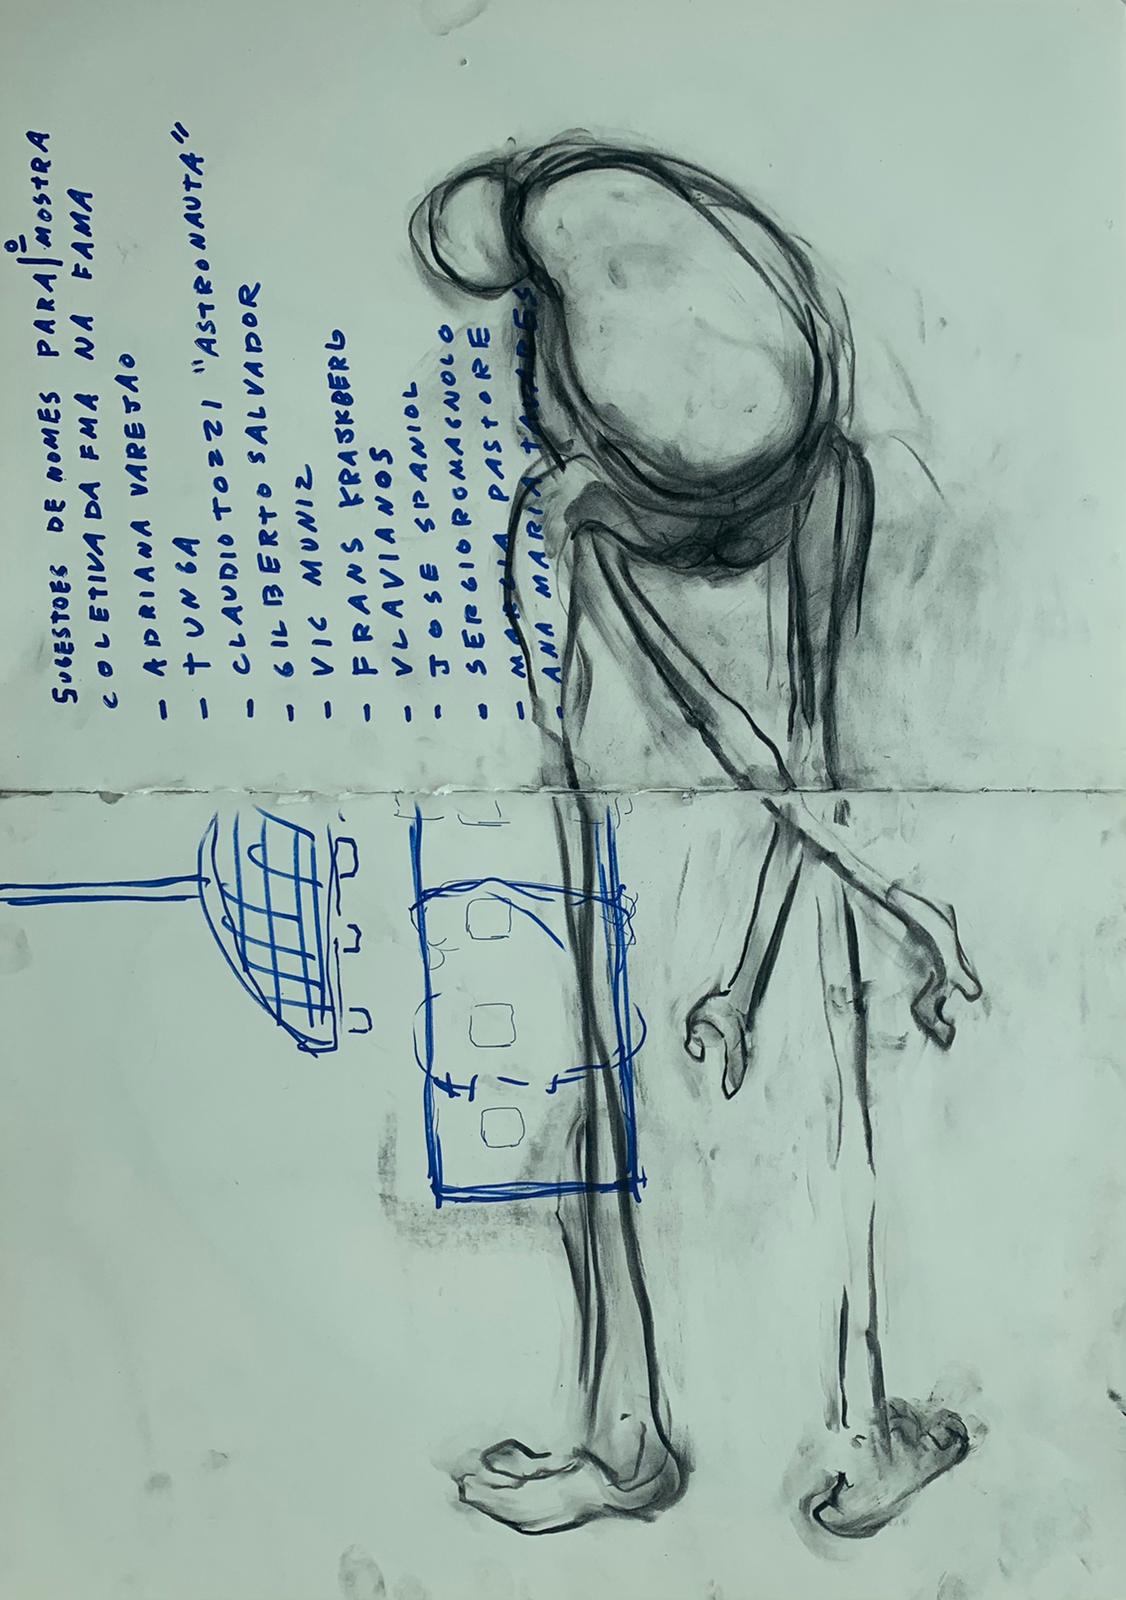 SUGESTOES DE NOMES PARA 1º MOSTRA
COLETIVA DA FMA NA FAMA
- ADRIANA VAREJAO
- TUNGA
- CLAUDIO TOZZI "ASTRONAUTA"
- GILBERTO SALVADOR
- VIC MUNIZ
- FRANS KRAJKBERG
- VLAVIANOS
- JOSE SPANIOL
- SERGIO ROMAGNOLO
- MARCIA PASTORE
- ANA MARIA TAVARES